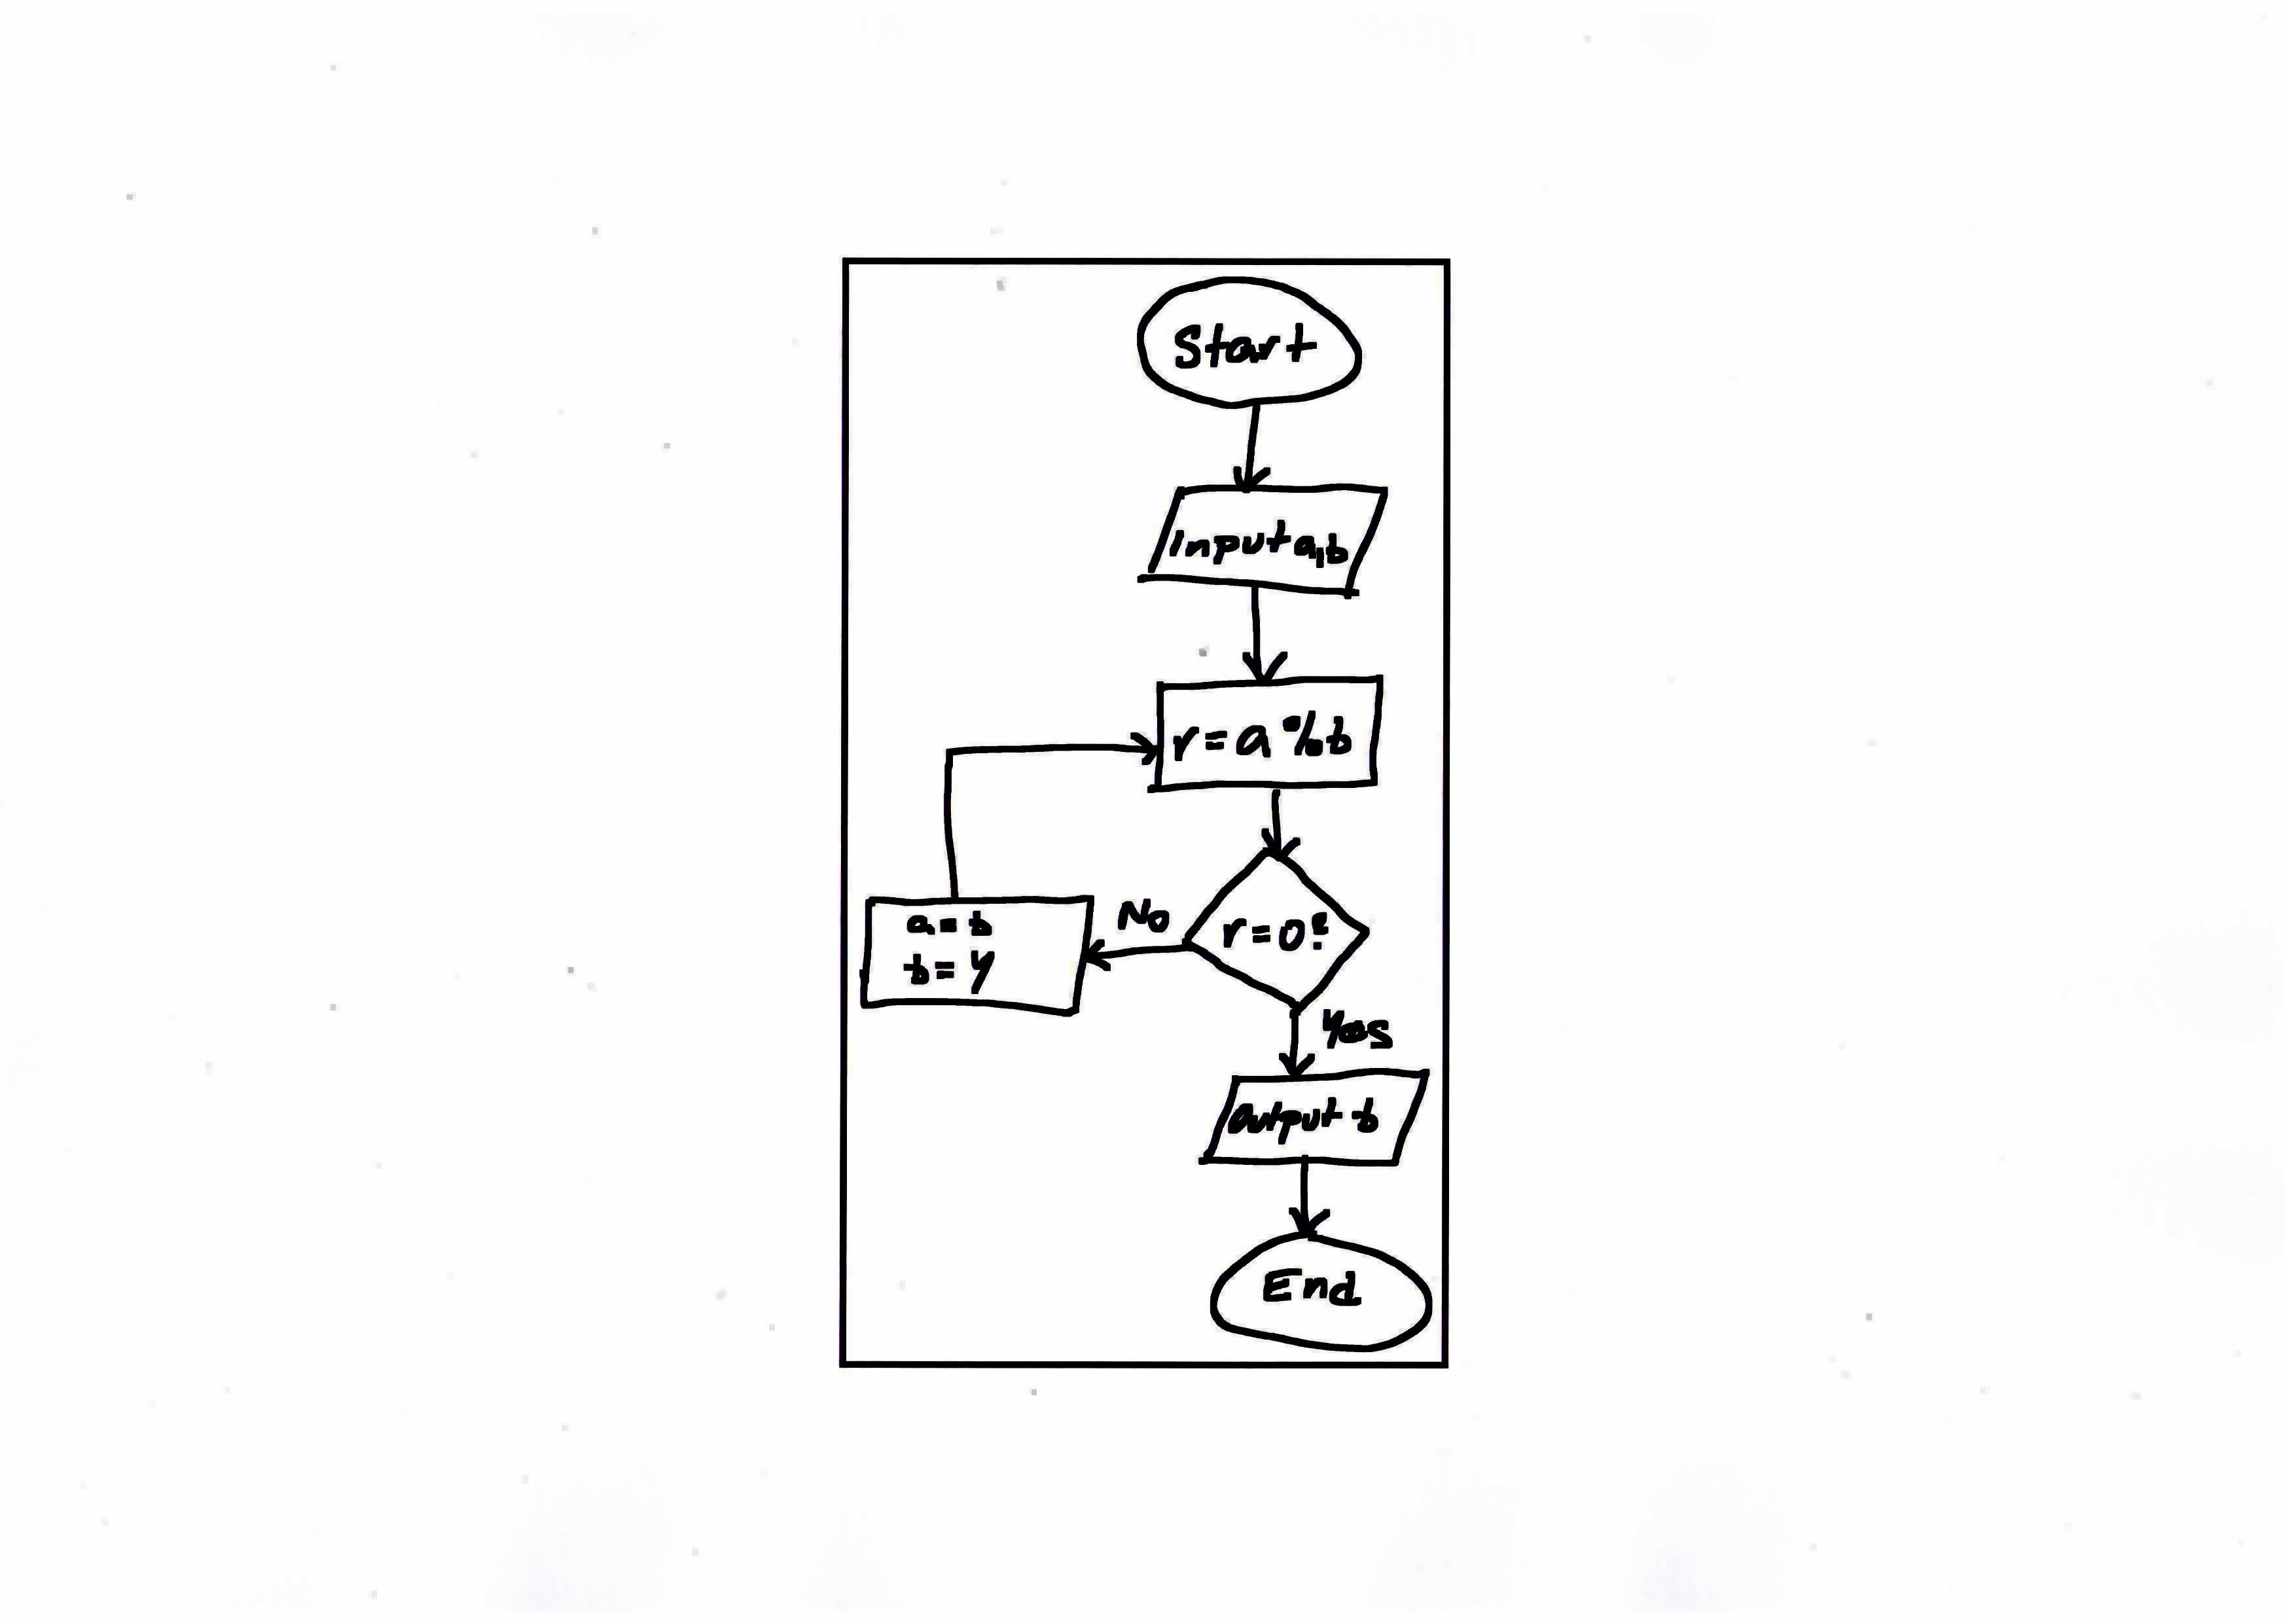 Start
input a,b
r = a % b
r = 0?
No
a = b
b = y
Yes
Output b
End